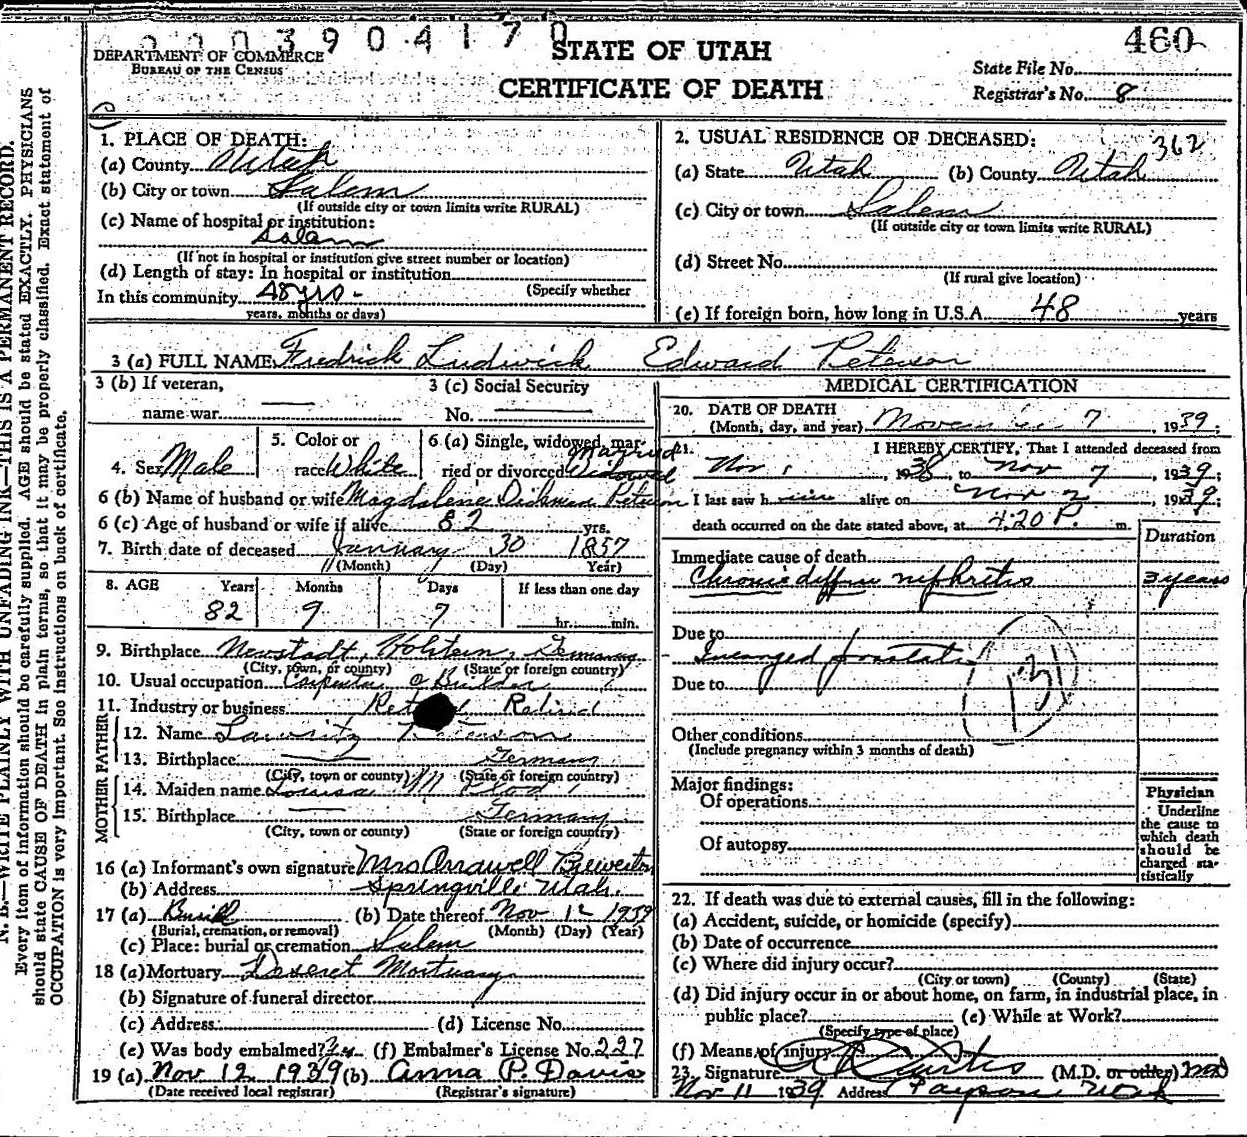 0003904170
460
DEPARTMENT OF COMMERCE
BUREAU OF THE CENSUS
STATE OF UTAH
CERTIFICATE OF DEATH
State File No.
Registrar's No. 8
N. B.—WRITE PLAINLY WITH UNFADING INK—THIS IS A PERMANENT RECORD.
Every item of information should be carefully supplied. AGE should be stated EXACTLY. PHYSICIANS
should state CAUSE OF DEATH in plain terms, so that it may be properly classified. Exact statement of
OCCUPATION is very important. See instructions on back of certificate.
1. PLACE OF DEATH:
(a) County Utah
(b) City or town Salem
(If outside city or town limits write RURAL)
(c) Name of hospital or institution:
Salem
(If not in hospital or institution give street number or location)
(d) Length of stay: In hospital or institution
(Specify whether
In this community 48 yrs
years, months or days)
2. USUAL RESIDENCE OF DECEASED: 362
(a) State Utah (b) County Utah
(c) City or town Salem
(If outside city or town limits write RURAL)
(d) Street No.
(If rural give location)
(e) If foreign born, how long in U.S.A. 48 years
3 (a) FULL NAME Fredrick Ludwick Edward Peterson
3 (b) If veteran,
name war
3 (c) Social Security
No.
4. Sex Male
5. Color or
race White
6 (a) Single, widowed, mar-
ried or divorced Married Widowed
6 (b) Name of husband or wife Magdalene Peterson
6 (c) Age of husband or wife if alive 82 yrs.
7. Birth date of deceased January 30 1857
(Month) (Day) Year)
8. AGE Years Months Days If less than one day
82 9 7 hr. min.
9. Birthplace Neustadt, Holstein, Germany
(City, town, or county) (State or foreign country)
10. Usual occupation Carpenter & Builder
11. Industry or business Retired
FATHER
12. Name Lawritz Peterson
13. Birthplace Germany
(City, town or county) (State or foreign country)
MOTHER
14. Maiden name Louisa M
15. Birthplace Germany
(City, town or county) (State or foreign country)
16 (a) Informant's own signature Mrs Orrawell Brewerton
(b) Address Springville Utah.
17 (a) Burial (b) Date thereof Nov 12 1939
(Burial, cremation, or removal) (Month) (Day) (Year)
(c) Place: burial or cremation Salem
18 (a) Mortuary Deseret Mortuary
(b) Signature of funeral director
(c) Address (d) License No.
(e) Was body embalmed? Yes (f) Embalmer's License No. 227
19 (a) Nov 12 1939 (b) Anna P. Davis
(Date received local registrar) (Registrar's signature)
MEDICAL CERTIFICATION
20. DATE OF DEATH
(Month, day, and year) November 7, 1939;
21. I HEREBY CERTIFY, That I attended deceased from
Nov 1, 1938, to Nov 7, 1939;
I last saw him alive on Nov 2 1939;
death occurred on the date stated above, at 4:20 P. m.
Duration
Immediate cause of death
Chronic diffuse nephritis 3 years
Due to
Enlarged prostate
131
Due to
Other conditions
(Include pregnancy within 3 months of death)
Major findings:
Of operations
Of autopsy
Physician
Underline
the cause to
which death
should be
charged sta-
tistically
22. If death was due to external causes, fill in the following:
(a) Accident, suicide, or homicide (specify)
(b) Date of occurrence
(c) Where did injury occur?
(City or town) (County) (State)
(d) Did injury occur in or about home, on farm, in industrial place, in
public place? (e) While at Work?
(Specify type of place)
(f) Means of injury
23. Signature Curtis (M.D. or other) MD
Nov 11 1939 Address Payson Utah